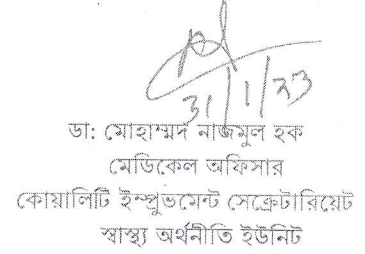 31/1/23
ডা: মোহাম্মদ নাজমুল হক
মেডিকেল অফিসার
কোয়ালিটি ইম্প্রুভমেন্ট সেক্রেটারিয়েট
স্বাস্থ্য অর্থনীতি ইউনিট